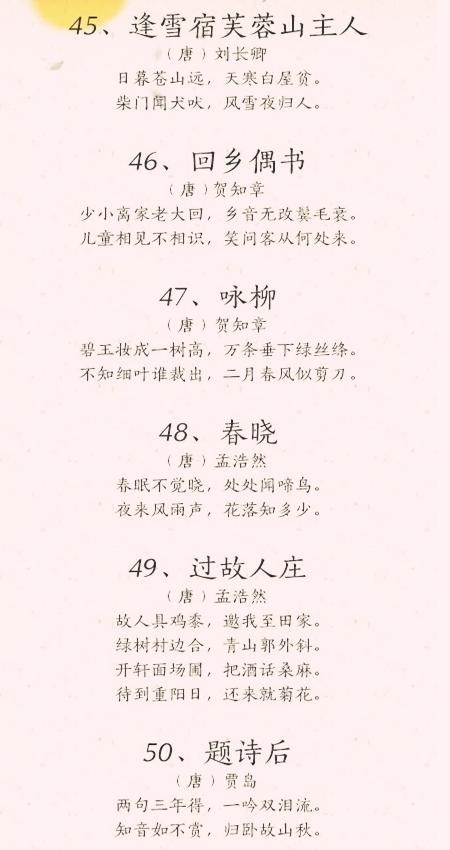 45、逢雪宿芙蓉山主人
（唐）刘长卿
日暮苍山远，天寒白屋贫。
柴门闻犬吠，风雪夜归人。
46、回乡偶书
（唐）贺知章
少小离家老大回，乡音无改鬓毛衰。
儿童相见不相识，笑问客从何处来。
47、咏柳
（唐）贺知章
碧玉妆成一树高，万条垂下绿丝绦。
不知细叶谁裁出，二月春风似剪刀。
48、春晓
（唐）孟浩然
春眠不觉晓，处处闻啼鸟。
夜来风雨声，花落知多少。
49、过故人庄
（唐）孟浩然
故人具鸡黍，邀我至田家。
绿树村边合，青山郭外斜。
开轩面场圃，把酒话桑麻。
待到重阳日，还来就菊花。
50、题诗后
（唐）贾岛
两句三年得，一吟双泪流。
知音如不赏，归卧故山秋。